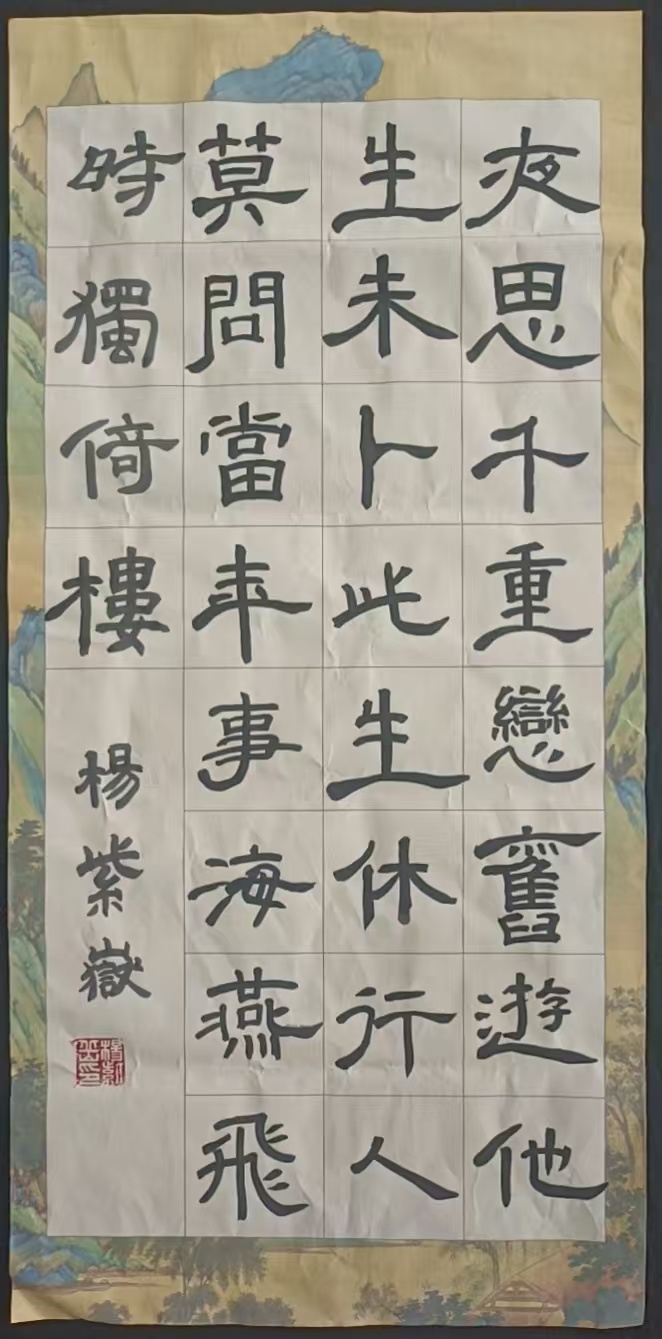 夜思千重戀舊遊他
生未卜此生休行人
莫問當年事海燕飛
時獨倚樓
楊紫嶽